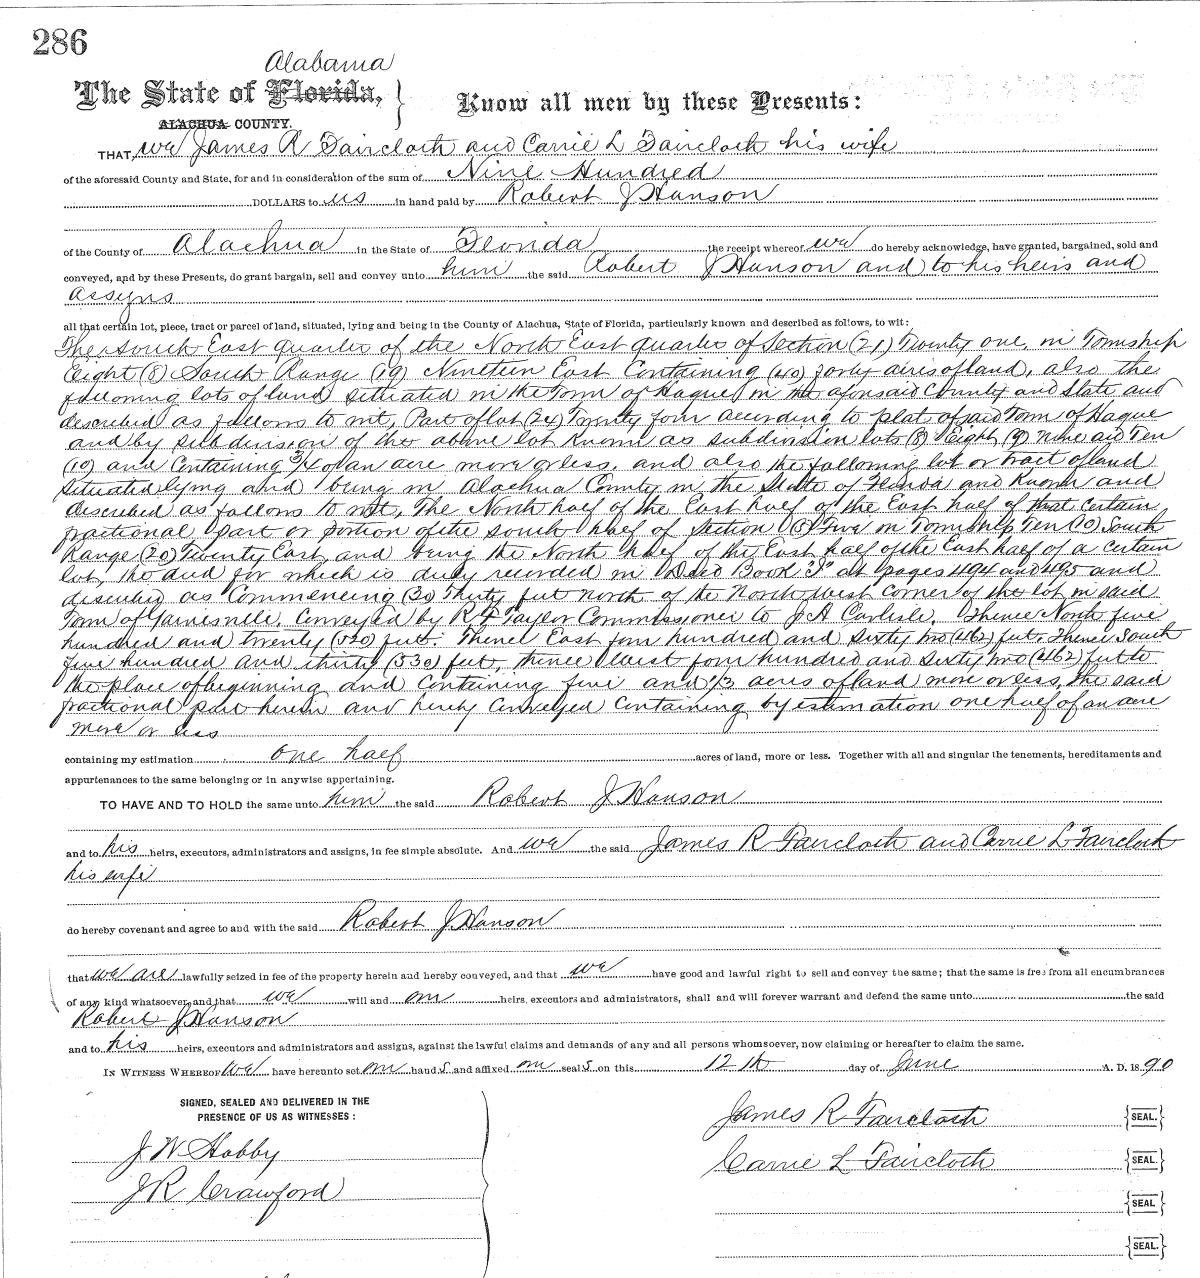 286
Alabama
The State of Florida,
ALACHUA COUNTY.
Know all men by these Presents:
THAT, we James R Faircloth and Carrie L Faircloth his wife
of the aforesaid County and State, for and in consideration of the sum of Nine Hundred
DOLLARS to us in hand paid by Robert J Hanson
of the County of Alachua in the State of Florida the receipt whereof we do hereby acknowledge, have granted, bargained, sold and
conveyed, and by these Presents, do grant bargain, sell and convey unto him the said Robert J Hanson and to his heirs and
assigns
all that certain lot, piece, tract or parcel of land, situated, lying and being in the County of Alachua, State of Florida, particularly known and described as follows, to wit:
The South East quarter of the North East quarter of Section (21) Twenty one, in Township
Eight (8) South Range (19) Nineteen East Containing (40) forty acres of land, also the
following lots of land situated in the Town of Hague in the aforesaid County and State and
described as follows to wit, Part of lot (24) Twenty four according to plat of said Town of Hague
and by subdivision of the above lot known as subdivision lots (8) Eight (9) Nine and Ten
(10) and Containing 3/4 of an acre more or less, and also the following lot or tract of land
situated lying and being in Alachua County in the State of Florida and known and
described as follows to wit, The North half of the East half of the East half of that certain
fractional part or portion of the south half of Section (5) Five in Township Ten (10) South
Range (20) Twenty East and being the North half of the East half of the East half of a certain
lot, the deed for which is duly recorded in Deed Book "I" at pages 494 and 495 and
described as Commencing (30) Thirty feet north of the North West Corner of the lot in said
Town of Gainesville, Conveyed by R F Taylor Commissioner to J A Carlisle, Thence North five
hundred and twenty (520) feet. Thence East four hundred and sixty two (462) feet. Thence South
five hundred and thirty (530) feet, thence West four hundred and sixty two (462) feet to
the place of beginning and Containing five and 1/3 acres of land more or less, the said
fractional part herein and hereby Conveyed Containing by estimation one half of an acre
more or less
containing my estimation one half acres of land, more or less. Together with all and singular the tenements, hereditaments and
appurtenances to the same belonging or in anywise appertaining.
TO HAVE AND TO HOLD the same unto him the said Robert J Hanson
and to his heirs, executors, administrators and assigns, in fee simple absolute. And we the said James R Faircloth and Carrie L Faircloth
his wife
do hereby covenant and agree to and with the said Robert J Hanson
that we are lawfully seized in fee of the property herein and hereby conveyed, and that we have good and lawful right to sell and convey the same; that the same is free from all encumbrances
of any kind whatsoever, and that we will and our heirs, executors and administrators, shall and will forever warrant and defend the same unto the said
Robert J Hanson
and to his heirs, executors and administrators and assigns, against the lawful claims and demands of any and all persons whomsoever, now claiming or hereafter to claim the same.
IN WITNESS WHEREOF we have hereunto set our hand s and affixed our seal s on this 12th day of June A. D. 1890
SIGNED, SEALED AND DELIVERED IN THE
PRESENCE OF US AS WITNESSES:
James R Faircloth {SEAL.}
J W Hobby
Carrie L Faircloth {SEAL.}
J R Crawford
{SEAL.}
{SEAL.}